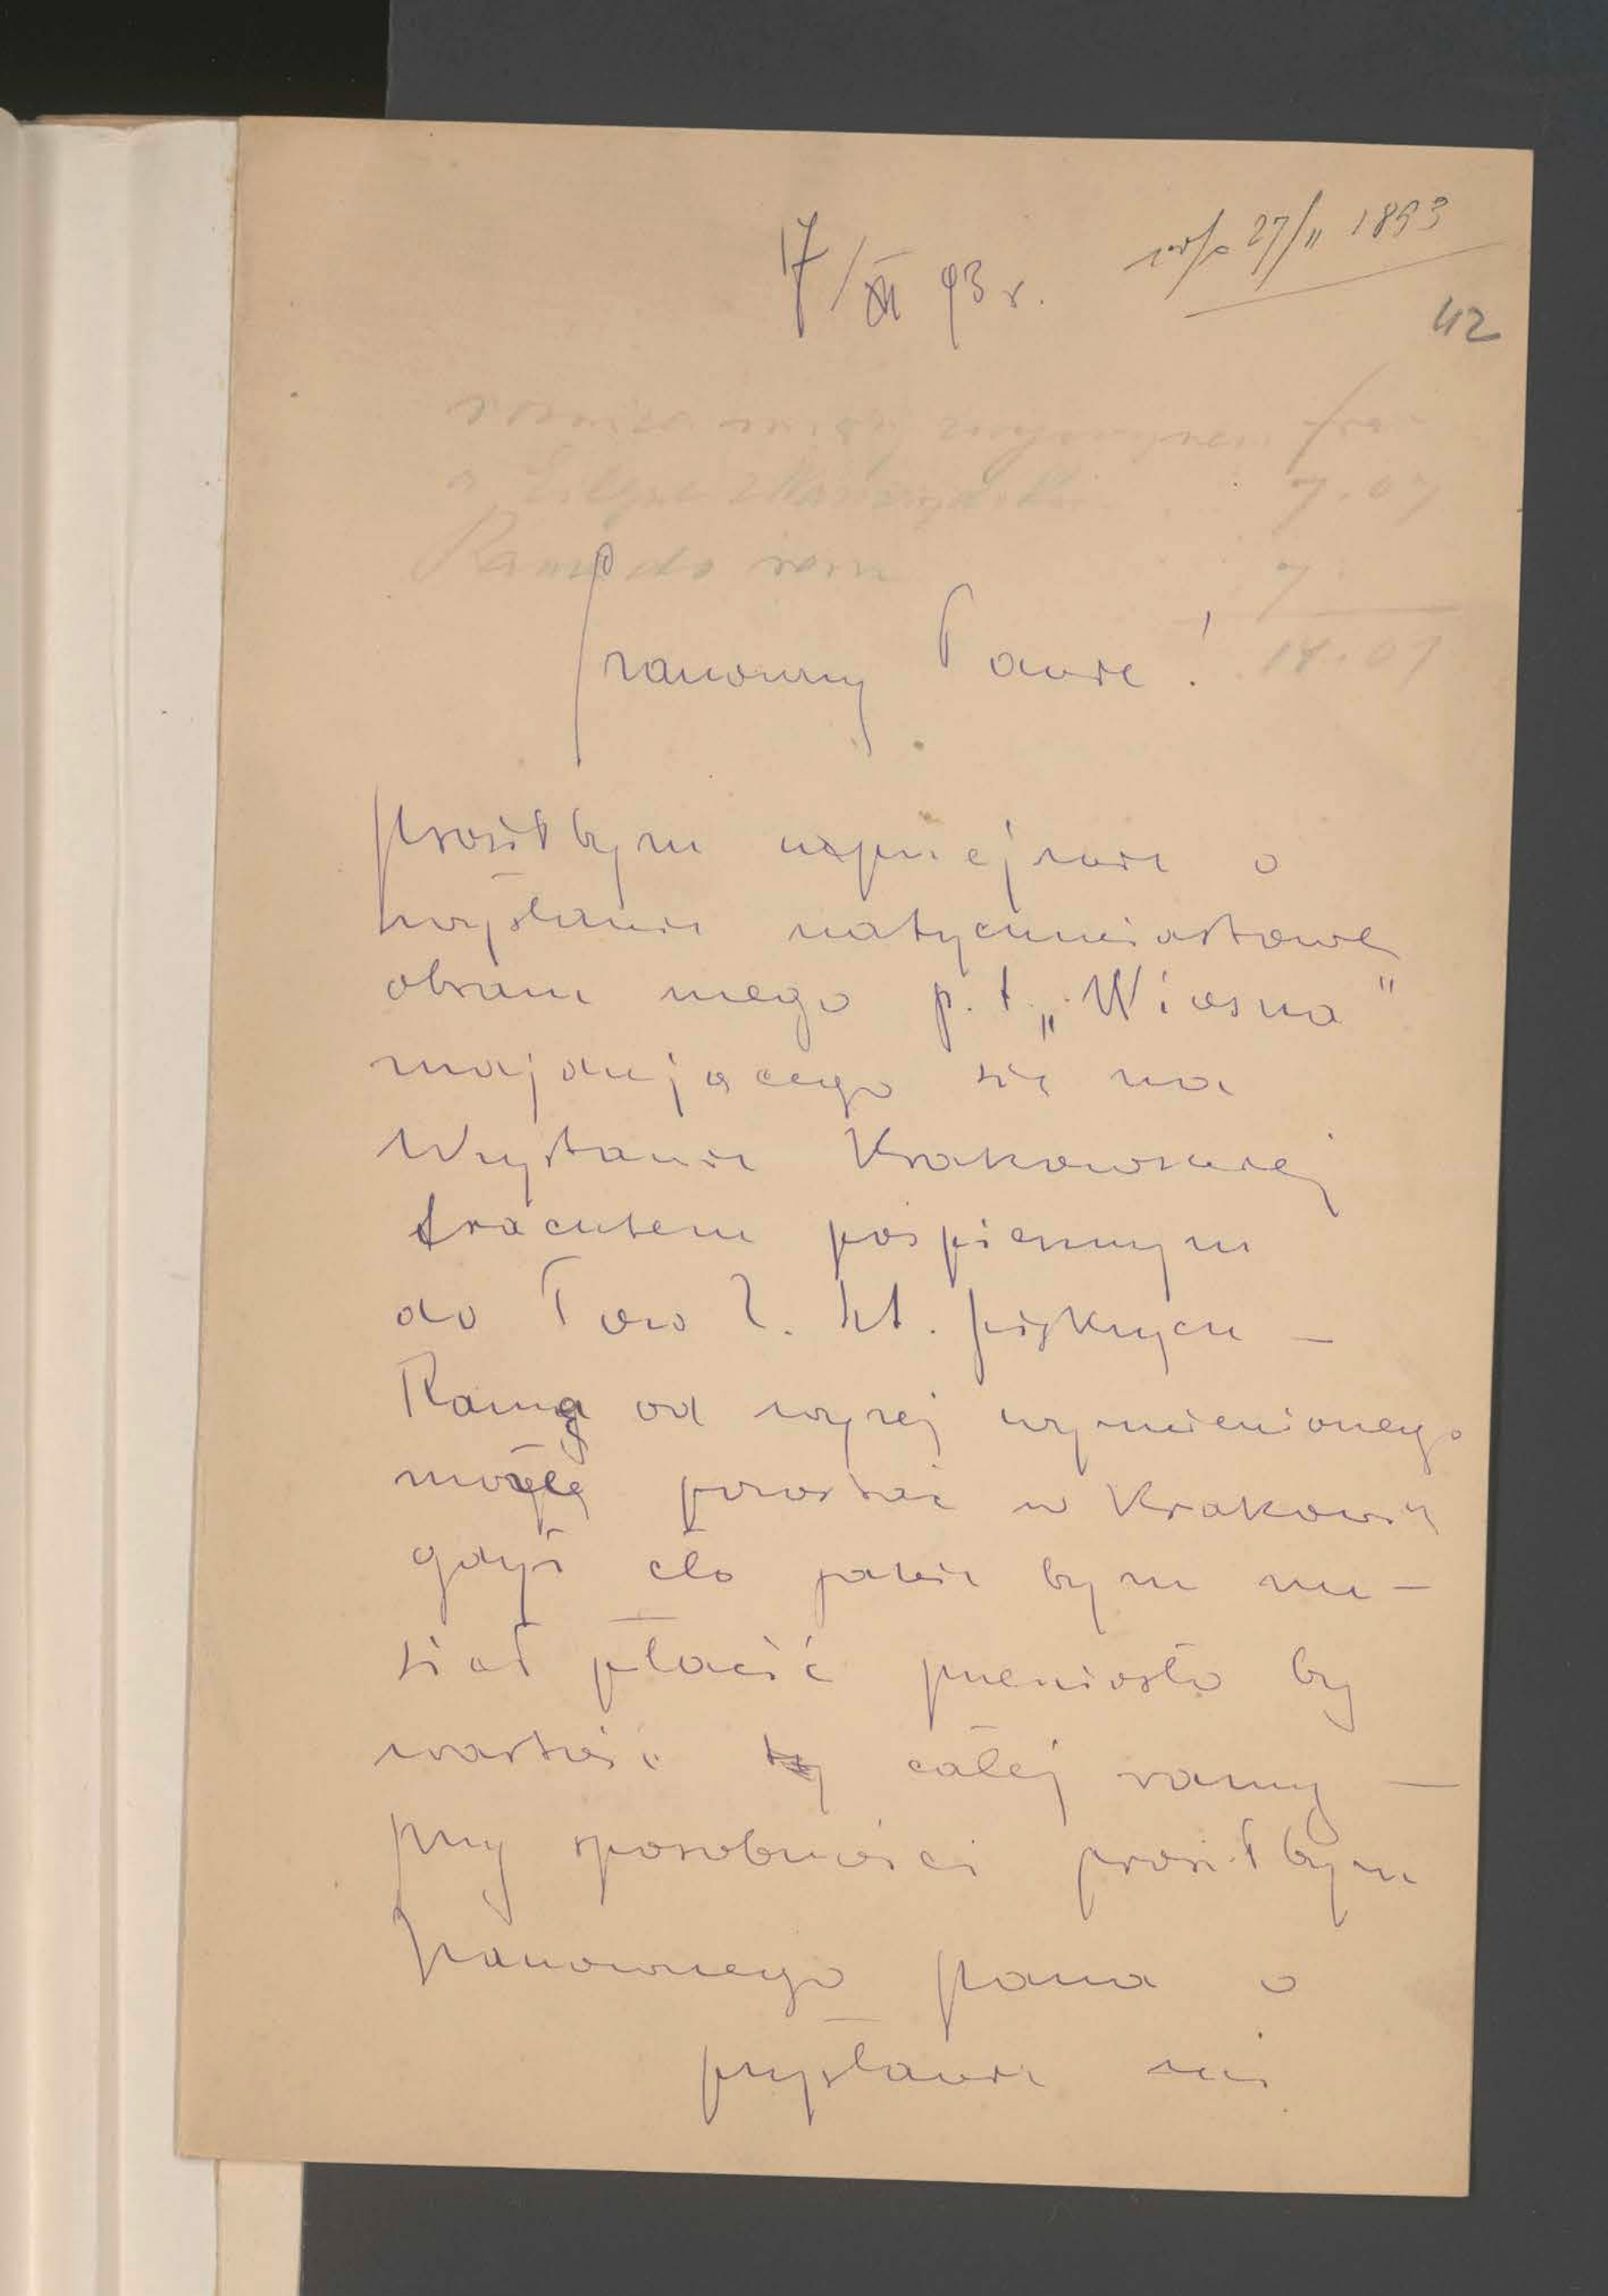 17/XI 93 r.
odp 27/11 1893
42
7.07
Ramę do
7
14.07
Szanowny Panie!
prosiłbym uprzejmie o
wysłanie natychmiastowe
obrazu mego p.t. „Wiosna"
znajdującego się na
Wystawie Krakowskiej
frachtem pospiesznym
do Tow Z. szt. pięknych —
Ramę od wyżej wymienionego
mogą pozostać w Krakowie
gdyż cło jakie bym mu-
siał płacić przeniosło by
wartość całej ramy —
przy sposobności prosiłbym
Szanownego pana o
przysłanie mi